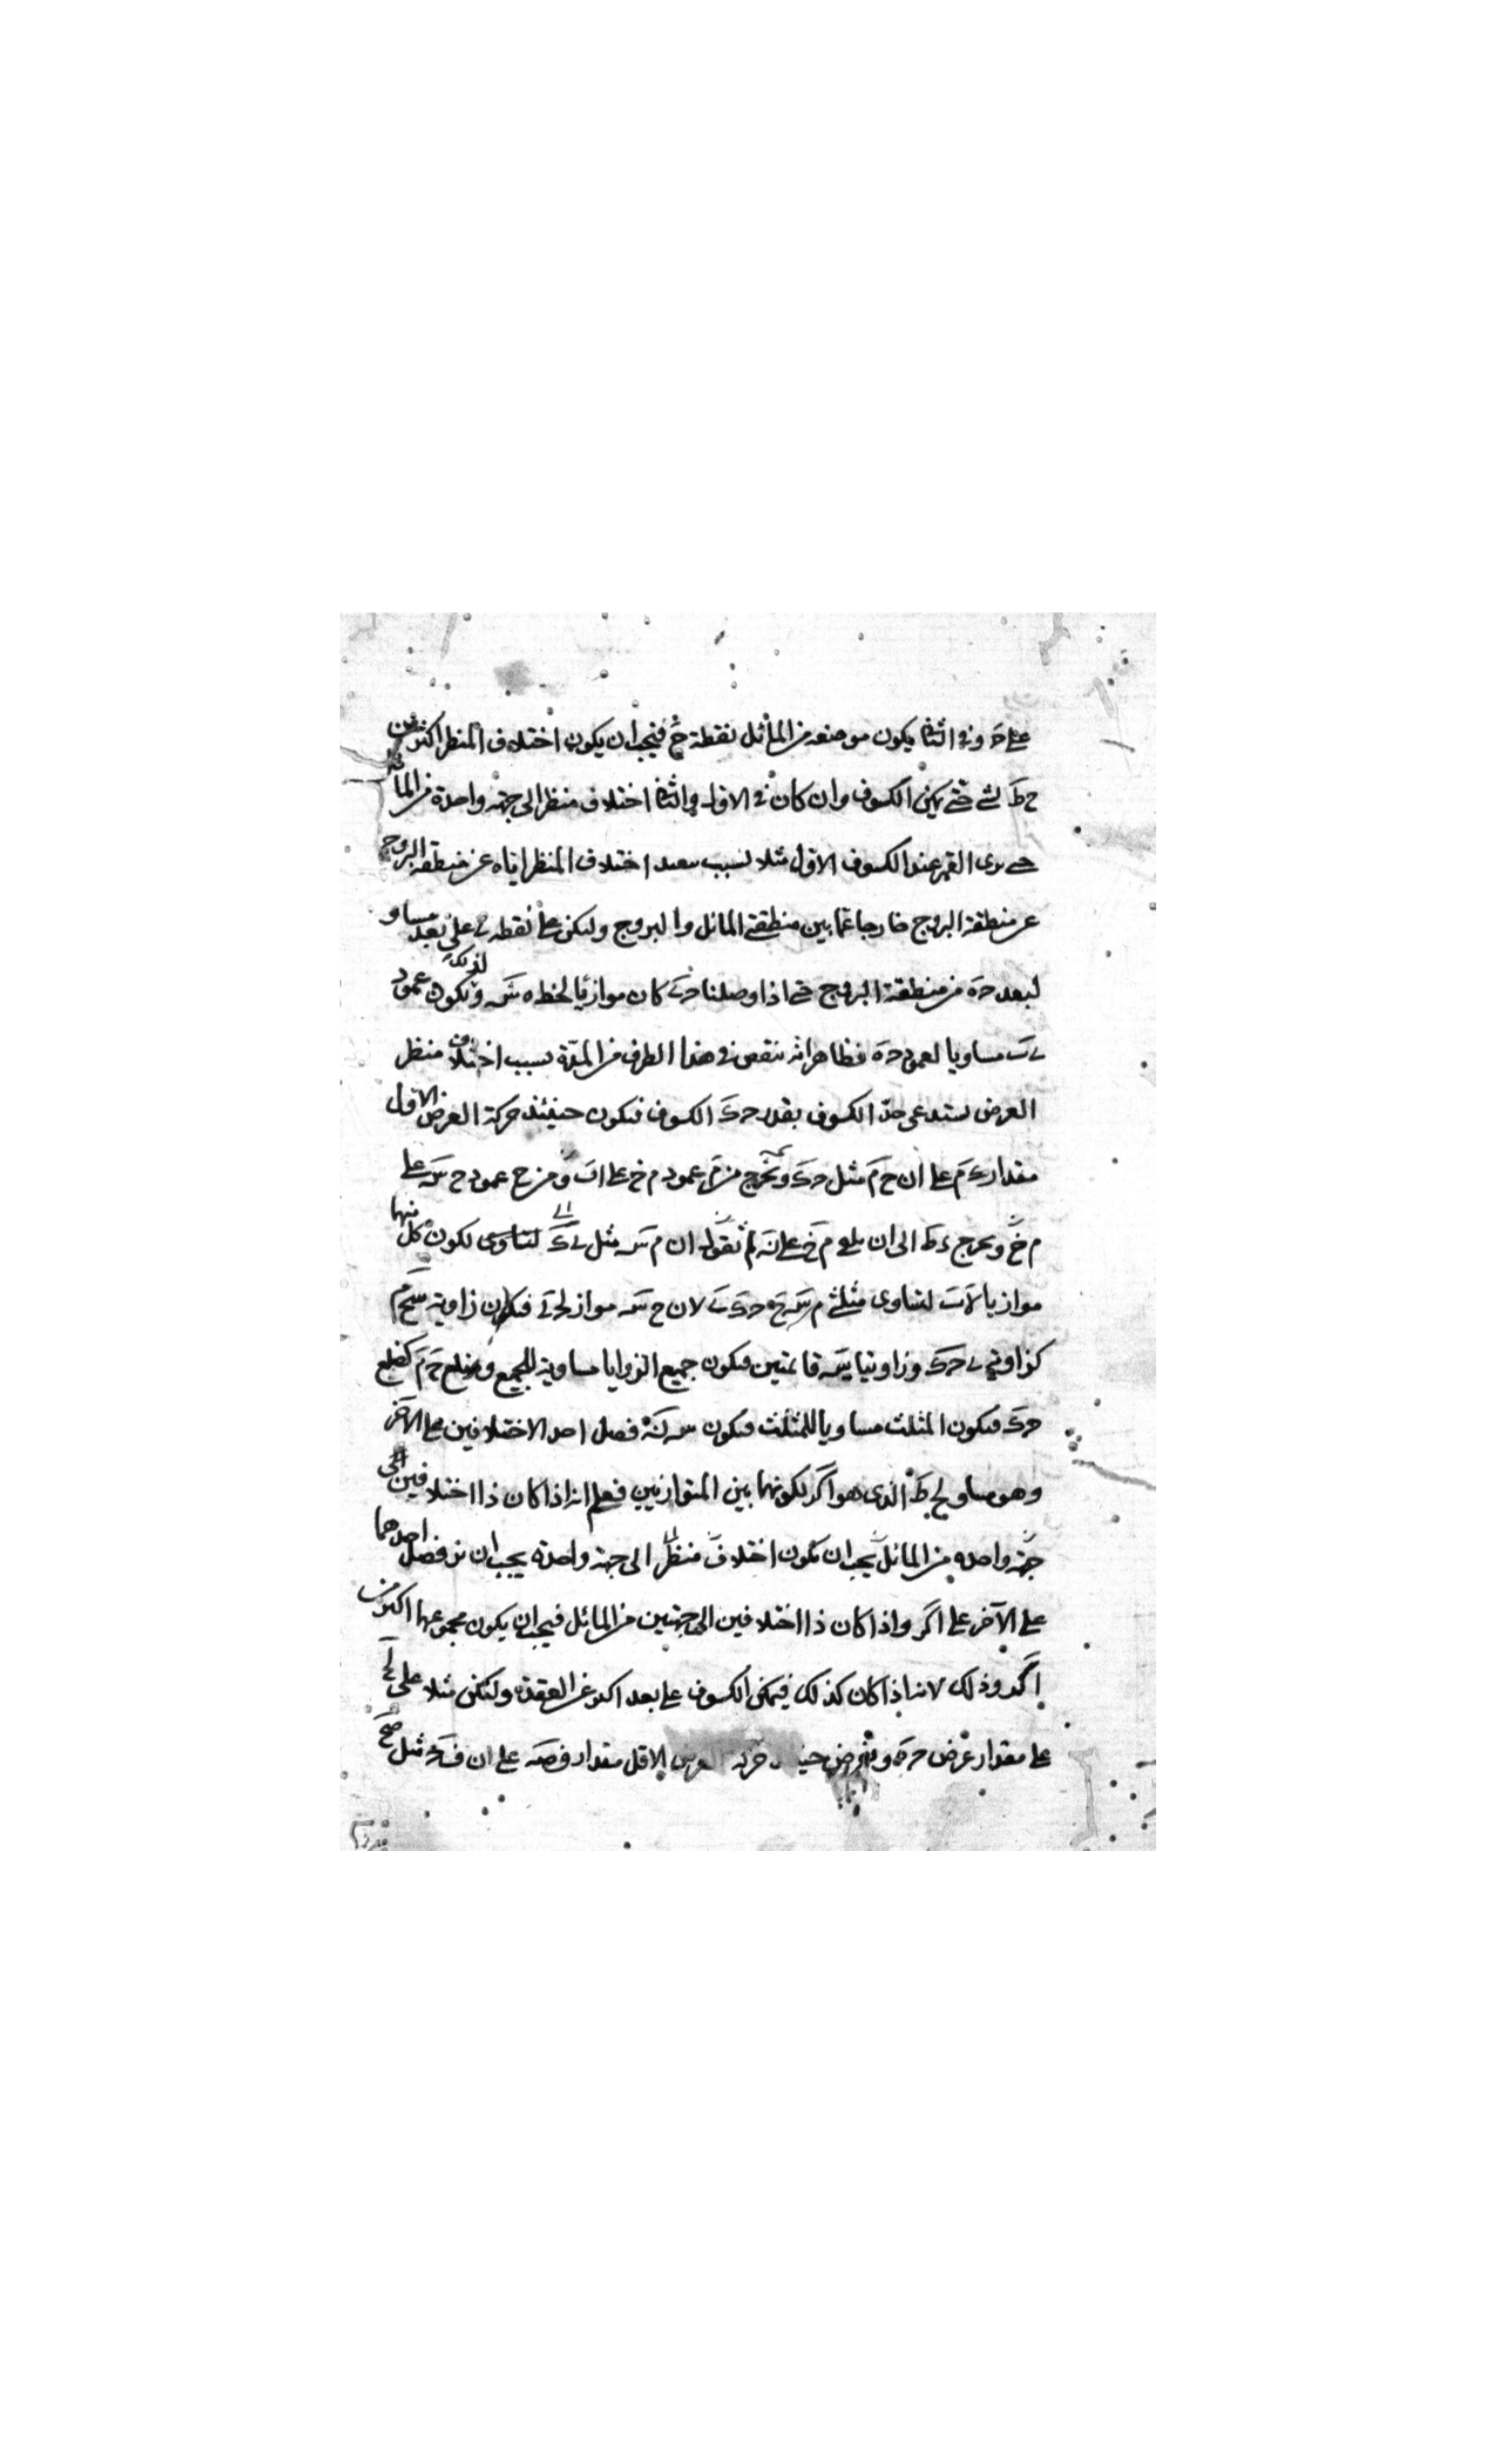 على ح وفى الثانى يكون موضعه من المائل نقطة خ فيجب ان يكون اختلاف المنظر اكثر من
ح ط لشى حتى يمكن الكسوف وان كان فى الاول والثانى اختلاف منظر الى جهة واحدة من المائل
حتى يرى القمر عند الكسوف الاول مثلا بسبب اختلاف المنظر اياه عن منطقة البروج
عن منطقة البروج خارجا عما بين منطقتى المائل والبروج وليكن على نقطه ى على بعد مساو
لبعد ح ه من منطقة البروج حتى اذا وصلنا ح ى كان موازيا لخط ه س ويكون لذلك عمود
مساويا لعمود ح ه فظاهر انه ينقص فى هذا الطرف من المدة بسبب اختلاف منظر
العرض يستدعى حد الكسوف بقدر ح ك الكسوف فيكون حينئذ حركة العرض الاول
مقدار ك م على ان ح م مثل ح ك ونخرج من م عمود م خ على ا ب ومن ح عمود ح س على
م خ ويخرج ء ط الى ان يلقى م خ على نه ثم نقول ان م س مثل ى ك لتساوى لكون كل منهما
موازيا لا ب لتساوى مثلثى م س ح ح ك ى لان ح س مواز لح ى فيكون زاوية س ح م
كزاوية ى ح ك وزاويتا ى س قائمتين فيكون جميع الزوايا مساوية للجميع وضلع ح م كضلع
ح ك فيكون المثلث مساويا للمثلث فيكون س نه فصل احد الاختلافين على الآخر
وهو مساو لح ط الذى هو اكر لكونهما بين المتوازيين فعلم انه اذا كان ذا اختلافين الى
جهة واحده من المائل يجب ان يكون اختلاف منظر الى جهة واحدة يجب ان يزيد فصل احدهما
على الآخر على اكر واذا كان ذا اختلافين الى جهتين من المائل فيجب ان يكون مجموعهما اكثر من
اكر وذلك لانه اذا كان كذلك فيمكن الكسوف على بعد اكثر عن العقدة وليكن مثلا على
على مقدار عرض ح ه ونفرض حينئذ حركة العرض الاقل مقدار على ان مثل